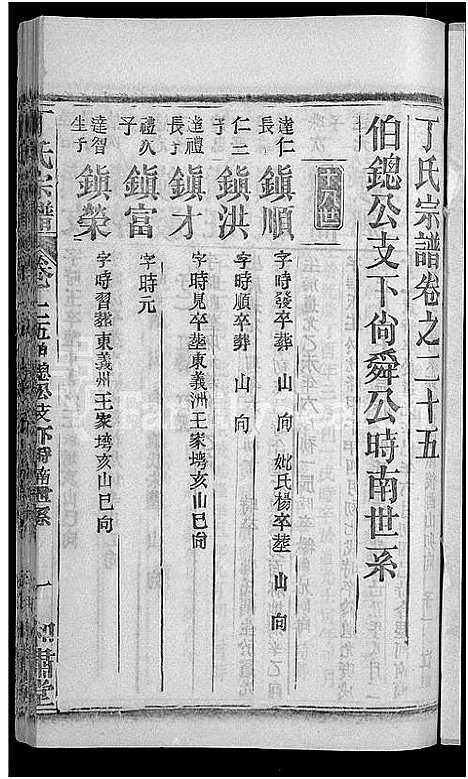 丁氏宗譜卷之二十五
伯鍶公支下尙舜公時南世系
十八世
達仁長子 鎮順 字時發卒葬 山 向 妣氏楊卒塟 山 向
仁二子 鎮洪 字時順卒葬 山 向
達禮長子 鎮才 字時見卒塟東義洲王家塆亥山巳向
禮次子 鎮富 字時元
達智生子 鎮榮 字時習葬東義州王家塆亥山巳向
丁氏宗譜 卷之二五 公支下時南世系 一